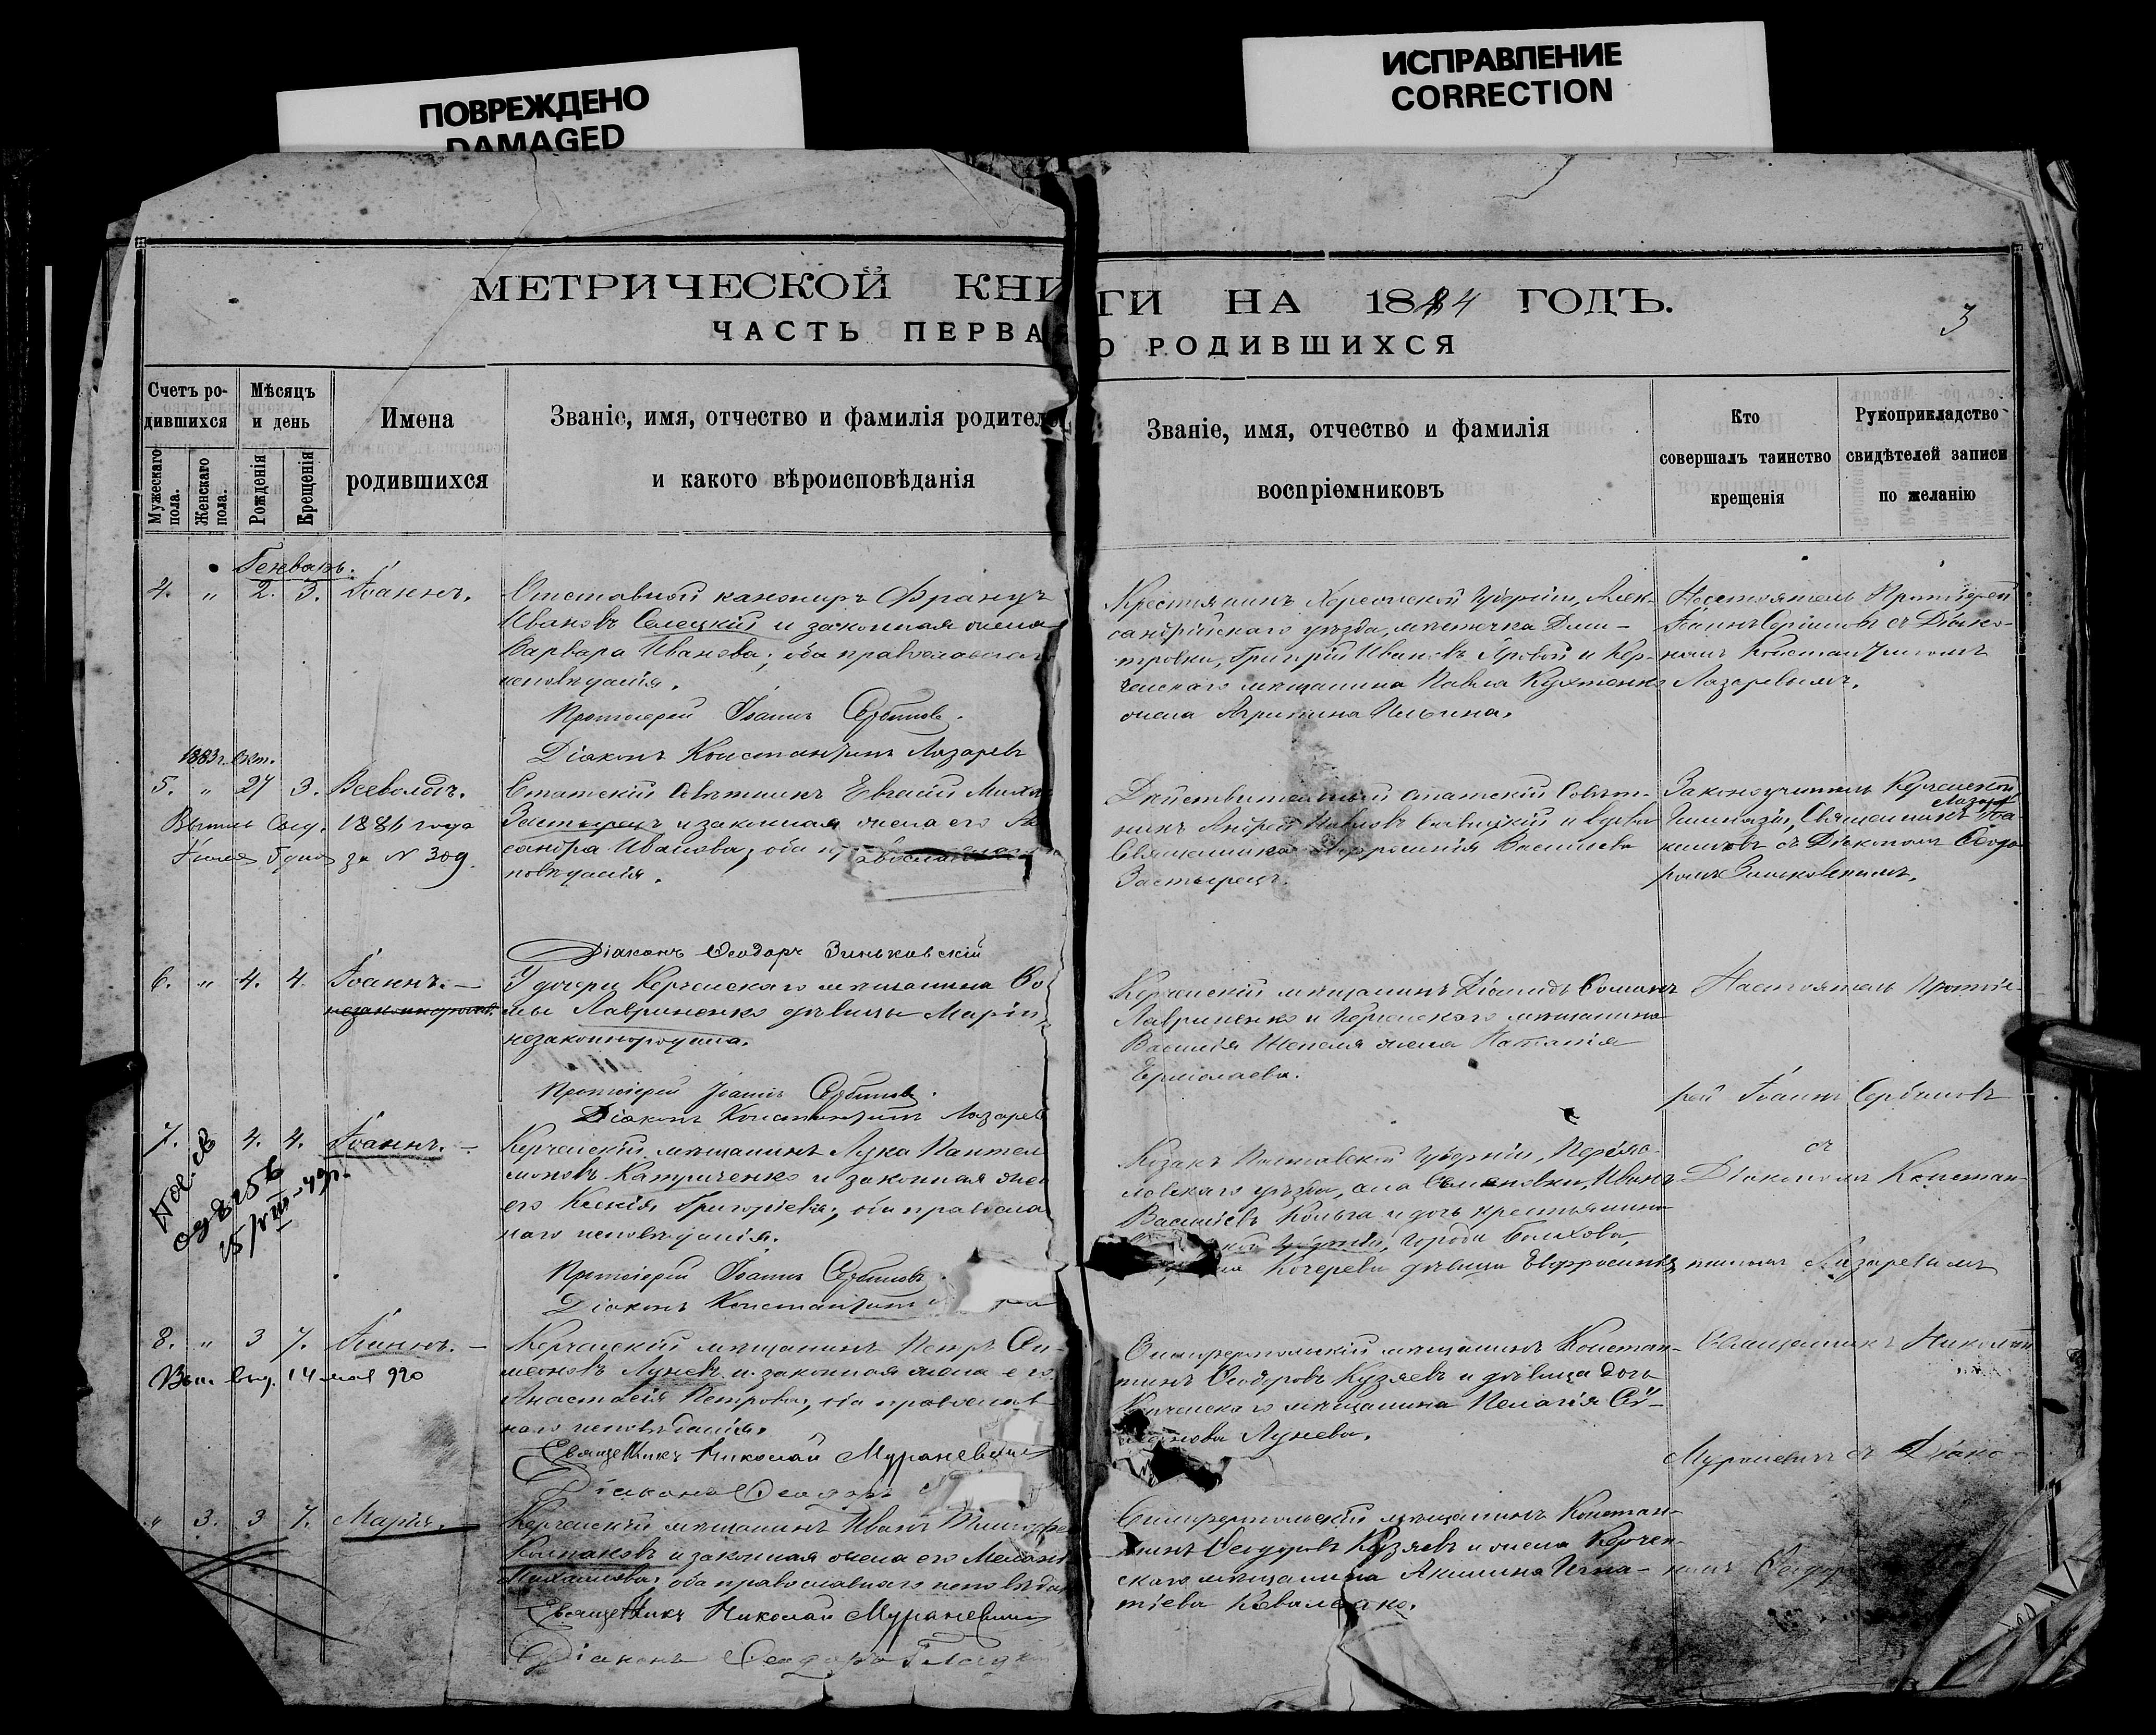 ПОВРЕЖДЕНО
DAMAGED
ИСПРАВЛЕНИЕ
CORRECTION
МЕТРИЧЕСКОЙ КНИГИ НА 1884 ГОДЪ.
3
ЧАСТЬ ПЕРВА О РОДИВШИХСЯ
Счетъ ро-
дившихся
Мужескаго
пола.
Женскаго
пола.
Мѣсяцъ
и день
Рожденія
Крещенія
Имена
родившихся
Званіе, имя, отчество и фамилія родителе
и какого вѣроисповѣданія
Званіе, имя, отчество и фамилія
воспріемниковъ
Кто
совершалъ таинство
крещенія
Рукоприкладство
свидѣтелей записи
по желанію
Генварь.
4. " 2. 3. Іоаннъ.
Отставной канониръ Францъ
Ивановъ Селецкій и законная жена
Варвара Иванова, оба православнаго
исповѣданія.
Протоіерей Іоаннъ Сербиновъ.
Діаконъ Константинъ Лазаревъ
Крестьянинъ Херсонской Губерніи, Алек-
сандрійскаго уѣзда, мѣстечка Дми-
тровки, Григорій Ивановъ Яровой и Кер-
ченскаго мѣщанина Павла Кухтенко
жена Агрипина Ильина.
Настоятель Протоіерей
Іоаннъ Сербиновъ съ Діако-
номъ Константиномъ
Лазаревымъ.
1883 г. Окт.
5. " 27 3. Всеволодъ.
Выпись выд. 1886 года
Іюня 5 дня за № 309.
Статскій Совѣтникъ Евгеній Миха
Застырецъ и законная жена его Ал
сандра Иванова, оба православнаго
повѣданія.
Діаконъ Ѳеодоръ Зиньковскій
Дѣйствительный Статскій Совѣт-
никъ Андрей Павловъ Савицкій и вдова
Священника Евфросинія Васильева
Застырецъ.
Законоучитель Керченской
Гимназіи, Священникъ
съ Діакономъ Ѳеодо-
ромъ Зиньковскимъ.
6. " 4. 4. Іоаннъ. —
незаконнорожд.
У дочери Керченскаго мѣщанина Ѳо
мы Лавриненко дѣвицы Маріи,
незаконнорожденъ.
Протоіерей Іоаннъ Сербиновъ.
Діаконъ Константинъ Лазаревъ
Керченскій мѣщанинъ Діомидъ Ѳоминъ
Лавриненко и Керченскаго мѣщанина
Василія Шепеля жена Наталія
Ермолаева.
Настоятель Протоіе-
рей Іоаннъ Сербиновъ
7. 4. 4. Іоаннъ. —
Керченскій мѣщанинъ Лука Пантел
моновъ Катриченко и законная жена
его Ксенія Григорьева, оба православ
наго исповѣданія.
Протоіерей Іоаннъ Сербиновъ
Діаконъ Константинъ
Козакъ Полтавской Губерніи, Переяс-
лавскаго уѣзда, села Семеновки, Иванъ
Васильевъ Кольга и дочь крестьянина
Губерніи, города Болхова,
Кочерева дѣвица Евфросинія
съ
Діакономъ Констан-
тиномъ Лазаревымъ
8. " 3 7. Іоаннъ. —
Вып. выд. 14 мая 920
Керченскій мѣщанинъ Петръ Си-
меоновъ Луневъ и законная жена его
Анастасія Петрова, оба православ
наго исповѣданія.
Священникъ Николай Мураневичъ
Діаконъ Ѳеодоръ
Симферопольскій мѣщанинъ Констан-
тинъ Ѳеодоровъ Кузяевъ и дѣвица дочь
Керченскаго мѣщанина Пелагія Си-
меонова Лунева.
Священникъ Николай
Мураневичъ съ Діако-
" 3. 3 7. Марія.
Керченскій мѣщанинъ Иванъ Тимофе
Колпаковъ и законная жена его Мелані
Михаилова, оба православнаго исповѣдан
Священникъ Николай Мураневичъ
Діаконъ Ѳеодоръ
Симферопольскій мѣщанинъ Констан-
тинъ Ѳеодоровъ Кузяевъ и жена Керчен-
скаго мѣщанина Акилина Игна-
тіева Коваленко.
номъ Ѳеодор